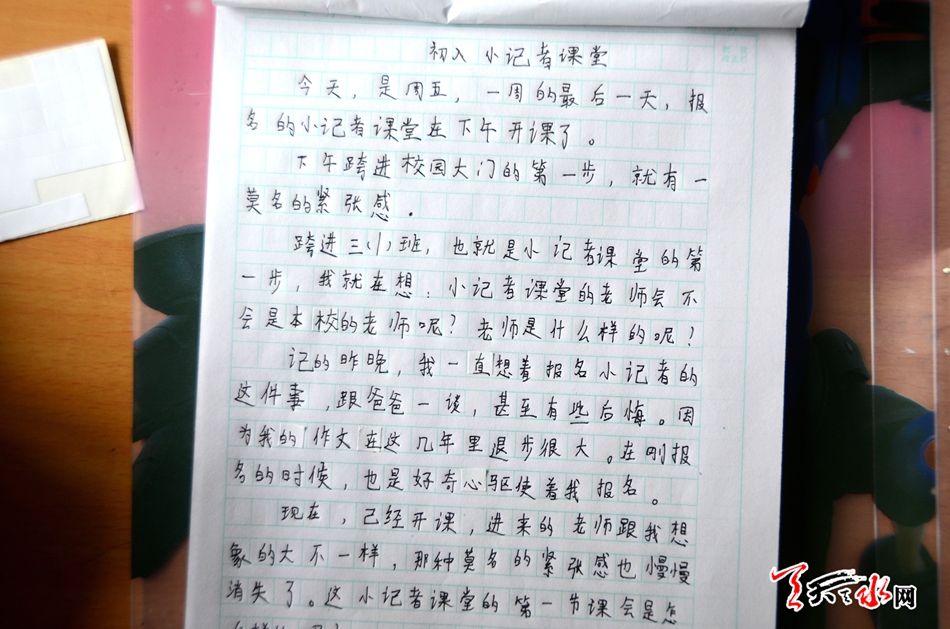 初入小记者课堂
今天，是周五，一周的最后一天，报
名的小记者课堂在下午开课了。
下午跨进校园大门的第一步，就有一
莫名的紧张感.
跨进三(1)班，也就是小记者课堂的第
一步，我就在想：小记者课堂的老师会不
会是本校的老师呢？老师是什么样的呢？
记的昨晚，我一直想着报名小记者的
这件事，跟爸爸一谈，甚至有些后悔。因
为我的作文在这几年里退步很大。在刚报
名的时候，也是好奇心驱使着我报名。
现在，已经开课，进来的老师跟我想
象的大不一样，那种莫名的紧张感也慢慢
消失了。这小记者课堂的第一节课会是怎
天天水网